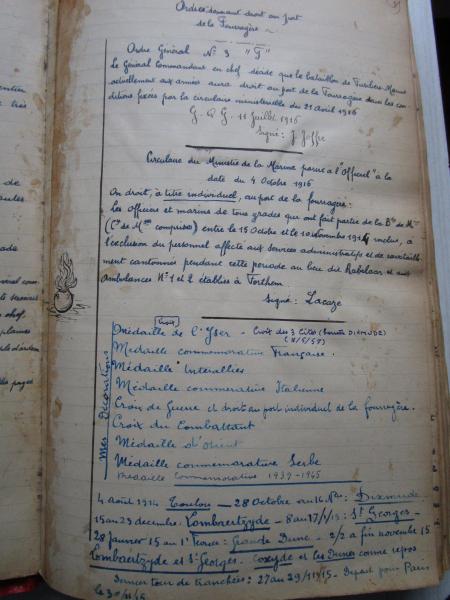 Ordre donnant droit au port
de la Fourragère
Ordre Général N° 3 "F"
Le Général Commandant en chef décide que le bataillon de Fusiliers Marins
actuellement aux armées aura droit au port de la Fourragère dans les con-
ditions fixées par la circulaire ministérielle du 21 avril 1916
G. Q. G. 11 Juillet 1916
Signé: J Joffre
Circulaire du Ministre de la Marine parue à l'"Officiel" à la
date du 4 Octobre 1916
On droit, à titre individuel, au port de la fourragère:
Les Officiers et marins de tous grades qui ont fait partie de la Bde de Mins
(Cie de Mses comprises) entre le 15 Octobre et le 10 Novembre 1914 inclus, à
l'exclusion du personnel affecté aux services administratifs et de ravitaille
ment cantonnés pendant cette période au lieu dit Rabelaar et aux
Ambulances N° 1 et 2 établies à Forthem
Signé: Lacaze
Mes Décorations
(Croix)
Médaille de l'Yser - Croix des 3 Cités (Society DIXMUDE)
Médaille commémorative Française.
Médaille Interalliés
Médaille commémorative Italienne
Croix de Guerre et droit au port individuel de la fourragère.
Croix du Combattant
Médaille d'orient
Médaille commémorative Serbe
Médaille Commémorative 1939-1945
4 août 1914 Toulon - 28 Octobre au 16 Nbre: Dixmude
15 au 23 decembre: Lombaertzyde - 8 au 17/1/15: St Georges -
28 Janvier 15 au 1er Fevrier: Grande Dune - 2/2 a fin novembre 15
Lombaertzyde et St Georges. Coxyde et les Dunes comme repos
Dernier tour de tranchées: 27 au 29/11/15. Depart pour Paris
le 30/11/15